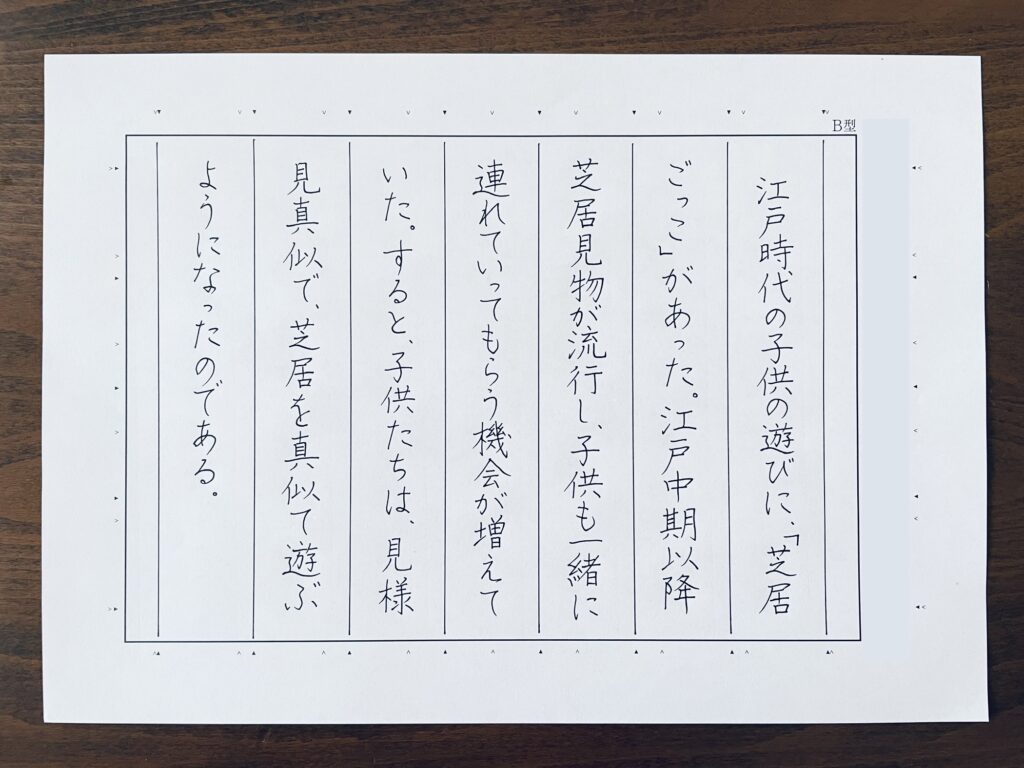 B型
江戸時代の子供の遊びに、「芝居
ごっこ」があった。江戸中期以降
芝居見物が流行し、子供も一緒に
連れていってもらう機会が増えて
いた。すると、子供たちは、見様
見真似で、芝居を真似て遊ぶ
ようになったのである。